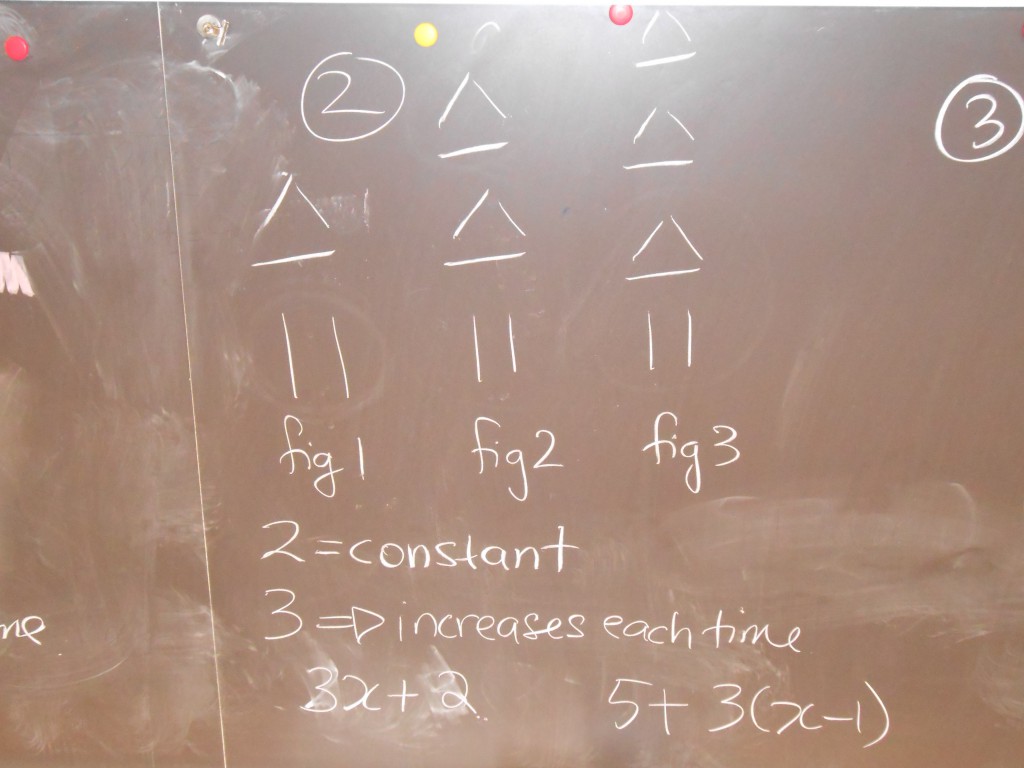 2
3
fig 1 fig 2 fig 3
2 = constant
3 => increases each time
3x + 2 5 + 3(x-1)